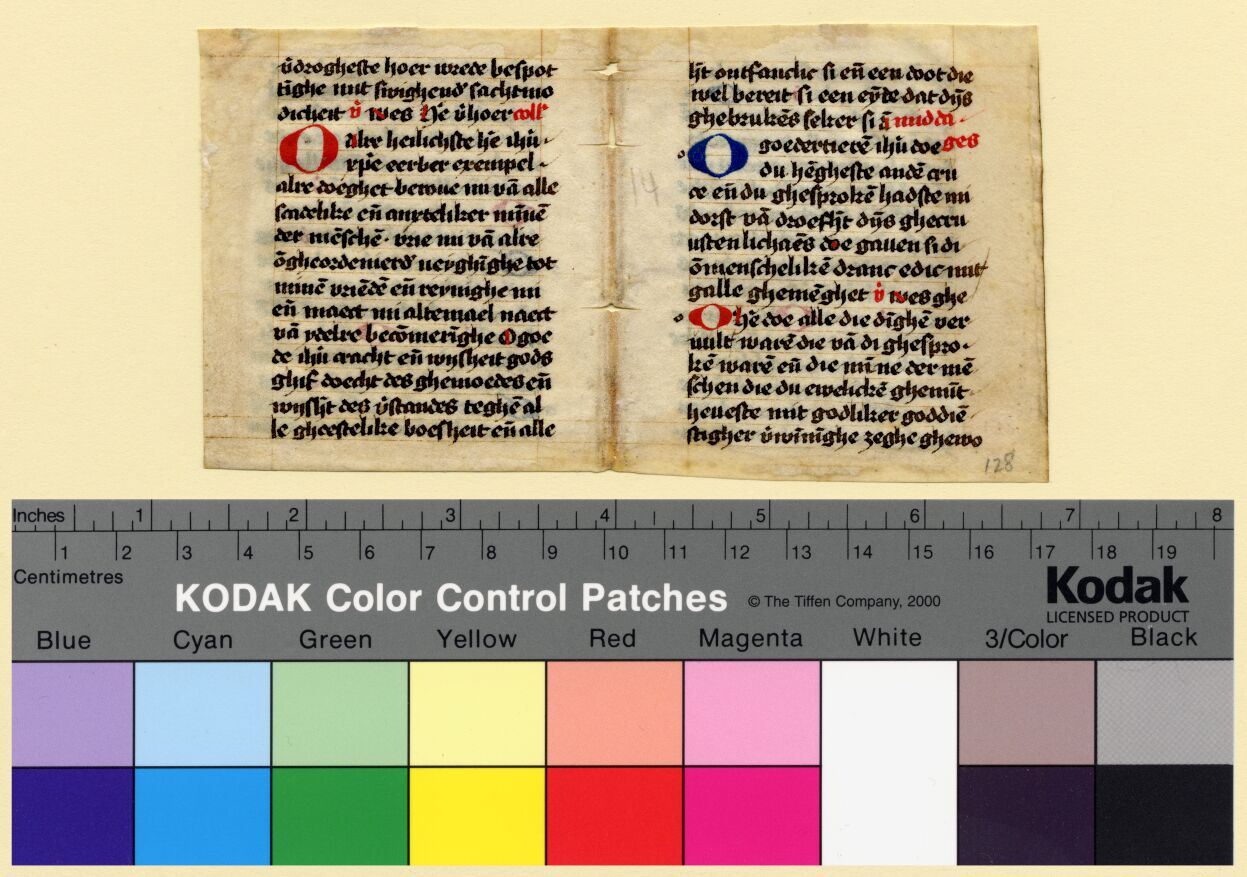 v̄drogheste hoer wrede bespot
tighe mit swighend' sachtmo
dicheit v̊ wes hē v̊hoer coll'
O alre heilichste hē ihū ·
xpē eerber exempel ·
alre doeghet bewue mi vā alle
scadelike eñ anxteliker mīnē
der mēschē · vrie mi vā alre
ōgheordenierd' neyghīghe tot
minē vriēdē eñ reynighe mi
eñ maect mi altemael naect
vā ydelre becōmerīghe O goe
de ihū cracht eñ wijsheit gods
ghif doecht des ghemoedes eñ
wijsh̄t des v̊standes teghē al
le gheestelike boesheit eñ alle
14
h̄t ontfanclic si eñ een doot die
wel bereit si een eyde dat dijs
ghebrukēs seker si ā midda
O goedertierē ihū doe ges
du hēgheste andē cru
ce eñ du ghesprokē hadste mi
dorst vā droefh̄t dijs ghecru
usten lichaēs doe gauen si di
ōmenschelikē dranc edic mit
galle ghemēghet v̊ wes ghe
O hē doe alle die dīghē ver
uult warē die vā di ghespro ·
kē warē eñ die mīne der mē
schen die du ewelickē ghemīt
heueste mit godliker goddiē
stigher v̊wīnīghe zeghe ghewo
128
Inches 1 2 3 4 5 6 7 8
1 2 3 4 5 6 7 8 9 10 11 12 13 14 15 16 17 18 19
Centimetres
KODAK Color Control Patches © The Tiffen Company, 2000 Kodak
LICENSED PRODUCT
Blue Cyan Green Yellow Red Magenta White 3/Color Black